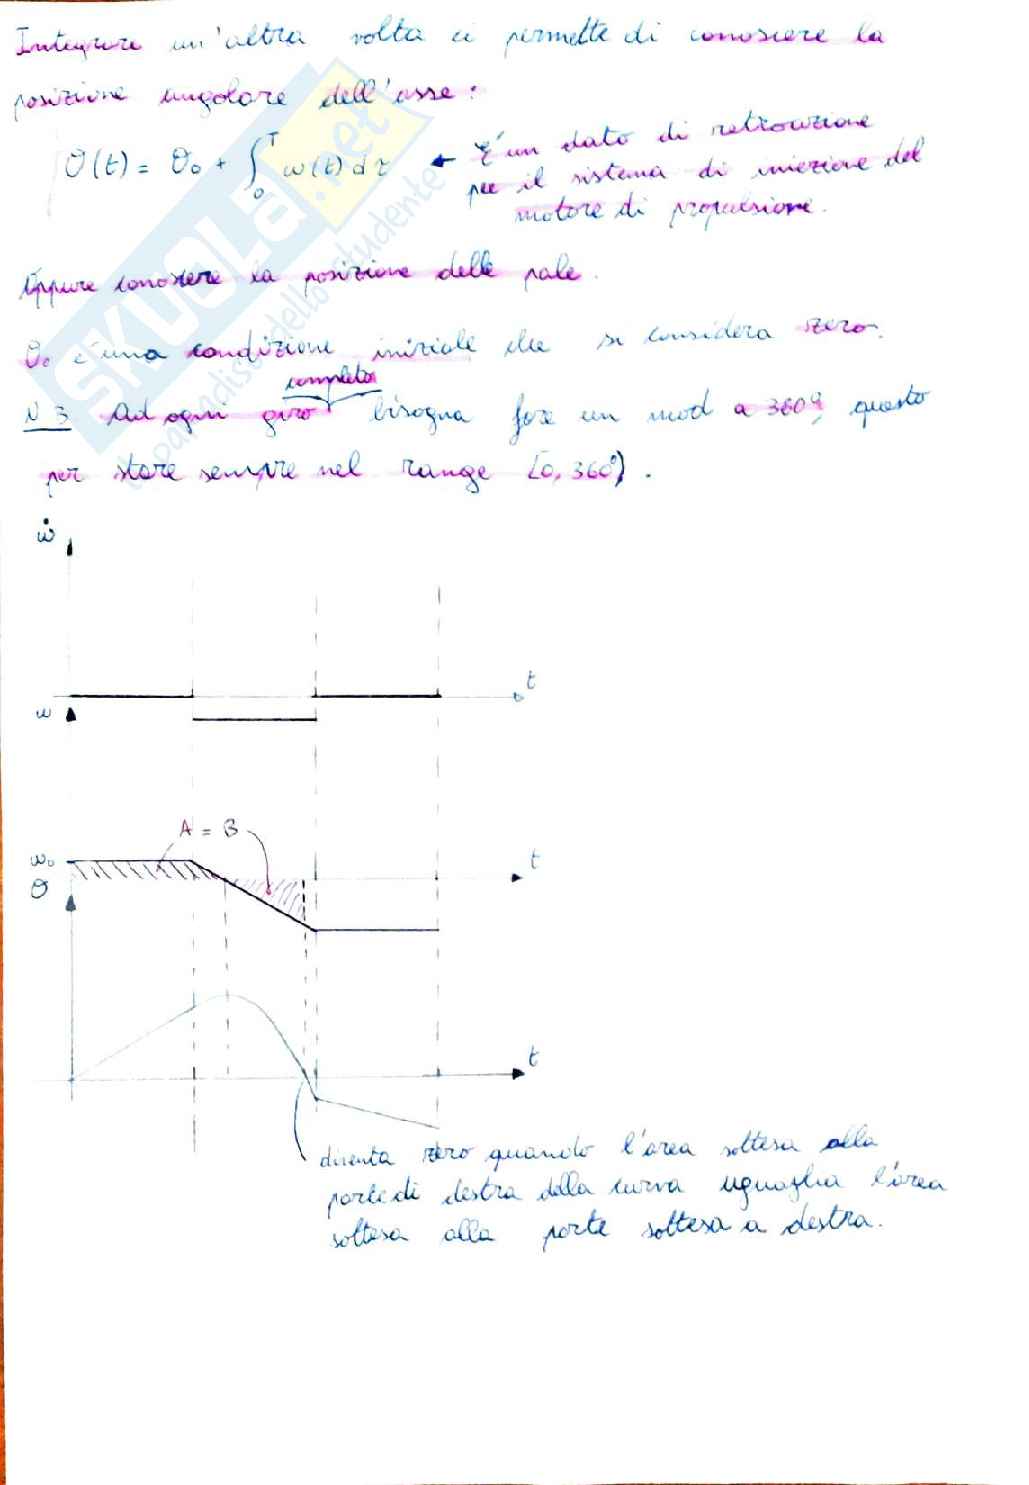 Integrare un'altra volta ci permette di conoscere la
posizione angolare dell'asse:
θ(t) = θ₀ + ∫₀ᵀ ω(t) dτ ← È un dato di retroazione
per il sistema di iniezione del
motore di propulsione.
Oppure conoscere la posizione delle pale.
θ₀ è una condizione iniziale che si considera zero.
completo
N.3 Ad ogni giro bisogna fare un mod a 360°, questo
per stare sempre nel range [0, 360°).
ω̇
t
ω
A = B
ω₀
t
θ
t
diventa zero quando l'area sottesa alla
parte di destra della curva uguaglia l'area
sottesa alla parte sottesa a destra.
SKUOLA.net
il paradiso dello studente